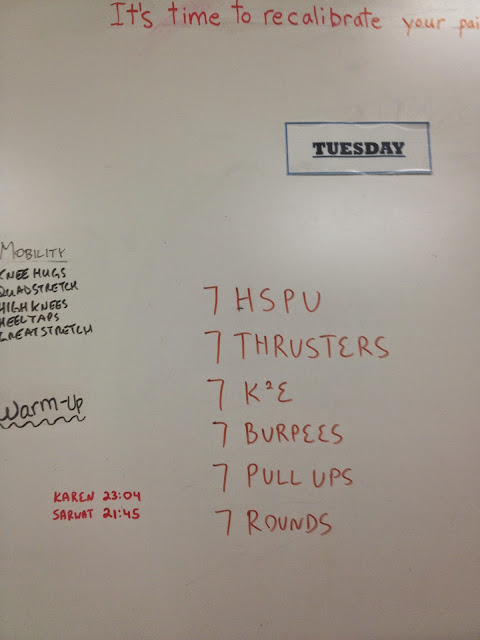 It's time to recalibrate your pai
TUESDAY
MOBILITY
KNEE HUGS
QUAD STRETCH
HIGH KNEES
HEEL TAPS
GREAT STRETCH
Warm-Up
KAREN 23:04
SARWAT 21:45
7 HSPU
7 THRUSTERS
7 K²E
7 BURPEES
7 PULL UPS
7 ROUNDS